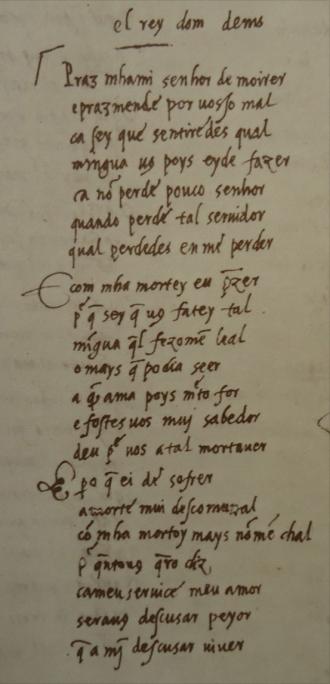 el rey dom denis
Praz mhami senhor de moirer
e praz mende por uosso mal
ca sey que sentiredes qual
mingua uꝯ poys ey de fazer
ca nō perdē pouco senhor
quando perdē tal seruidor
qual perdedes en mē perder
E com mha mortey eu p̄zer
p̄ q̄ sey q̄ uꝯ farey tal
mīgua q̄l fezomē leal
o mays q̄ podia seer
a q̄ ama poys mᵒto for
e fostes uos mui sabedor
deu pᵉ uos a tal mort auer
E po q̄ ei dē sofrer
a morte mui descomunal
cō mha mortoy mays nō mē chal
p q̄ntouꝯ q̄ro diz
ca meu seruicē meu amor
serauꝯ descusar peyor
q̄ a mj̄ descusar uiuer